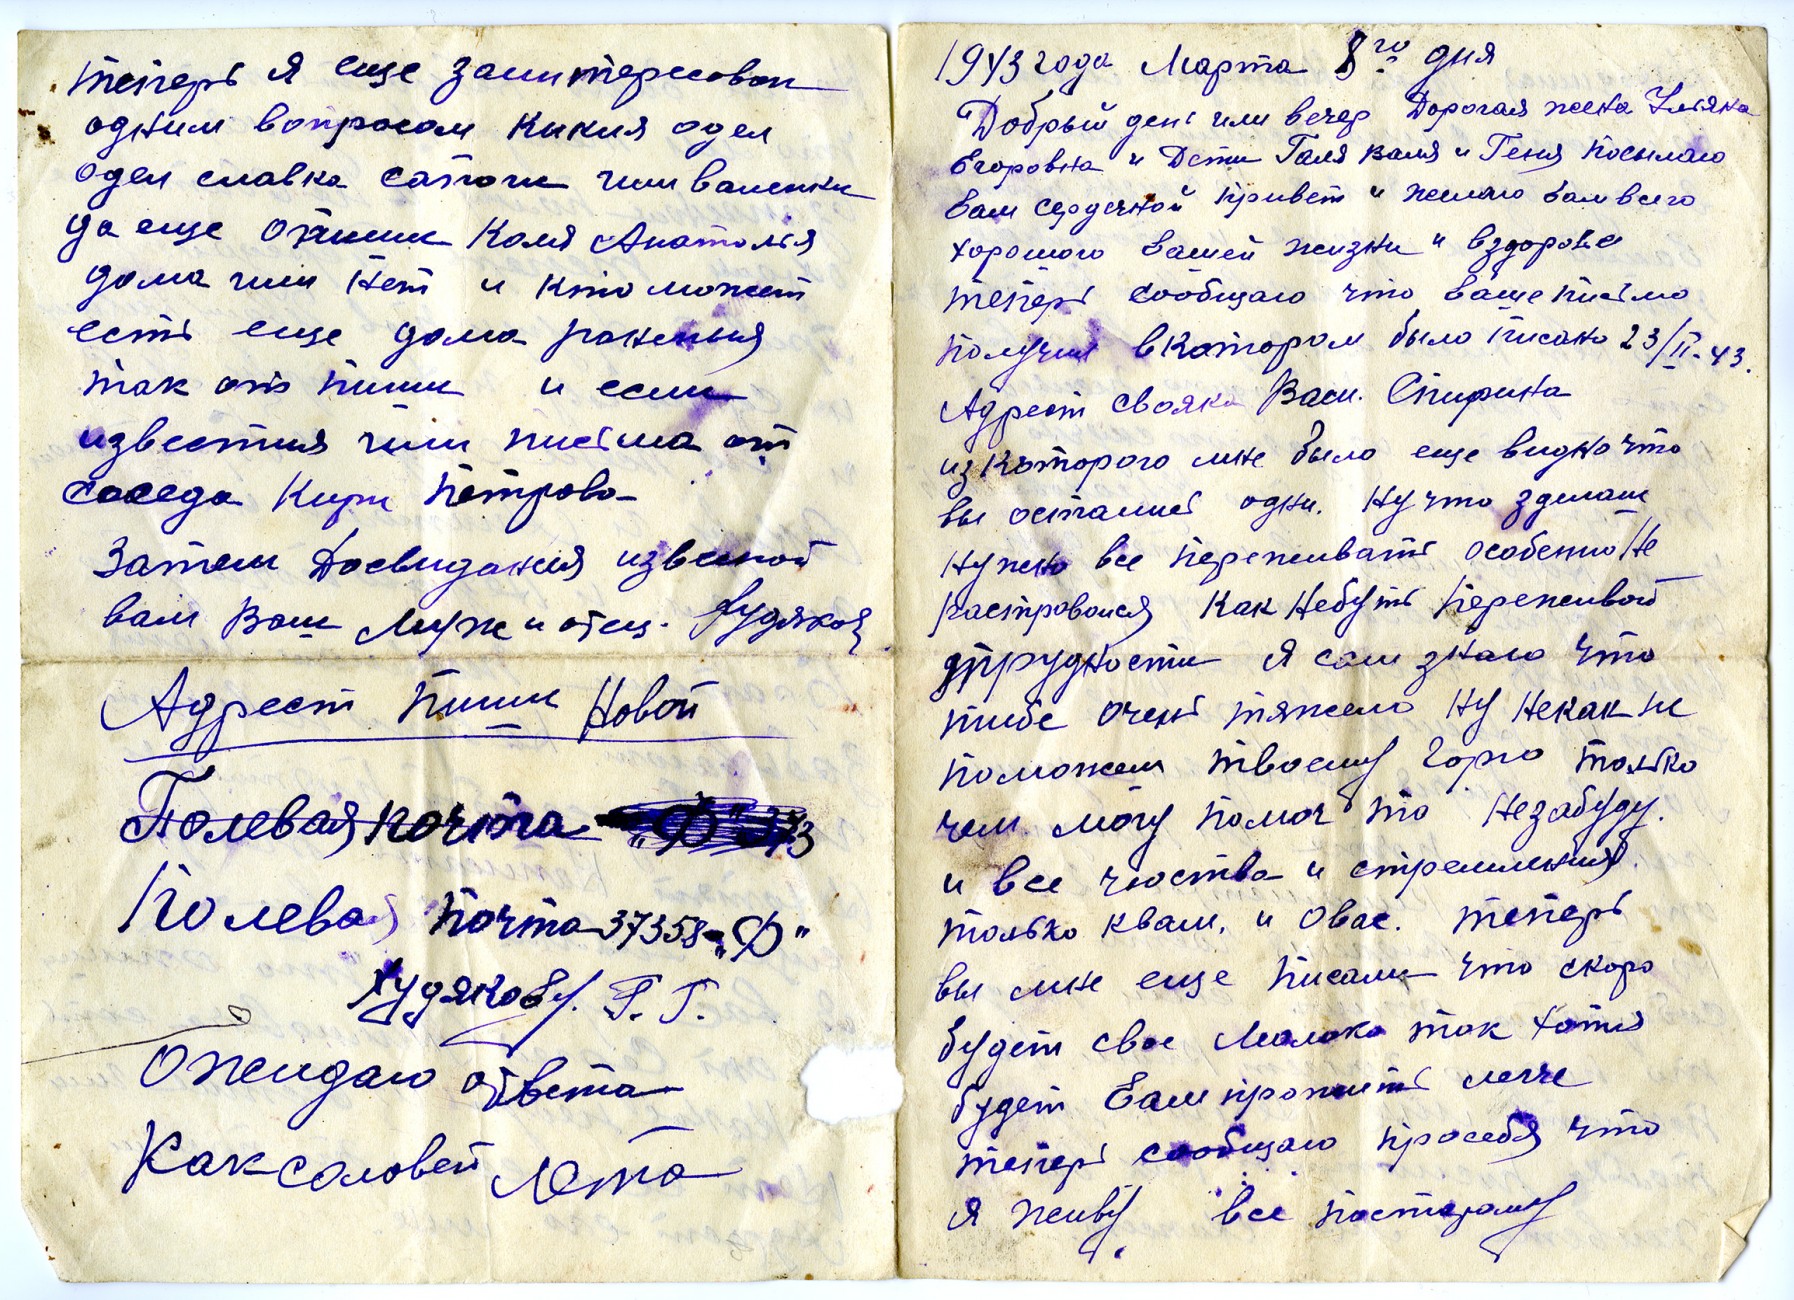 1943 года Марта 8го дня
Добрый день или вечер Дорогая жена Ульяна
Егоровна и Дети Галя Валя и Геня посылаю
вам сердечной привет и желаю вам всего
хорошого вашей жизни и вздоровье
теперь сообщаю что ваше письмо
получил вкотором было писано 23/II-43.
Адрест свояка Васи. Спирина
из которого мне было еще видно что
вы остались одни. Ну что зделаш
нужно все переживать особенно не
растровойся как небуть переживай
трудности я сам знаю что
тибе очень тяжело ну некак не
поможем твоему горю только
чем могу помоч то незабуду.
и все чюства и стремления.
только квам. и овас. теперь
вы мне еще писали что скоро
будет свое молоко так хотя
будет вам прожить легче
теперь сообщаю просебя что
я живу все постарому
теперь я еще заинтересован
одним вопросом какия одел
одел славка сапоги или валенки
да еще опиши Коля Анатолья
дома или нет и кто может
есть еще дома раненыя
так опиши и если
известия или письма от
соседа Кири Петрова
Затем Досвидания извесной
вам Ваш Муж и отец. Худяков
Адрест пиши Новой
Полевая почта "Ф" 373
Полевая почта 37358-"Ф"
Худякову. Г. Г.
Ожидаю ответа
Как соловей лета